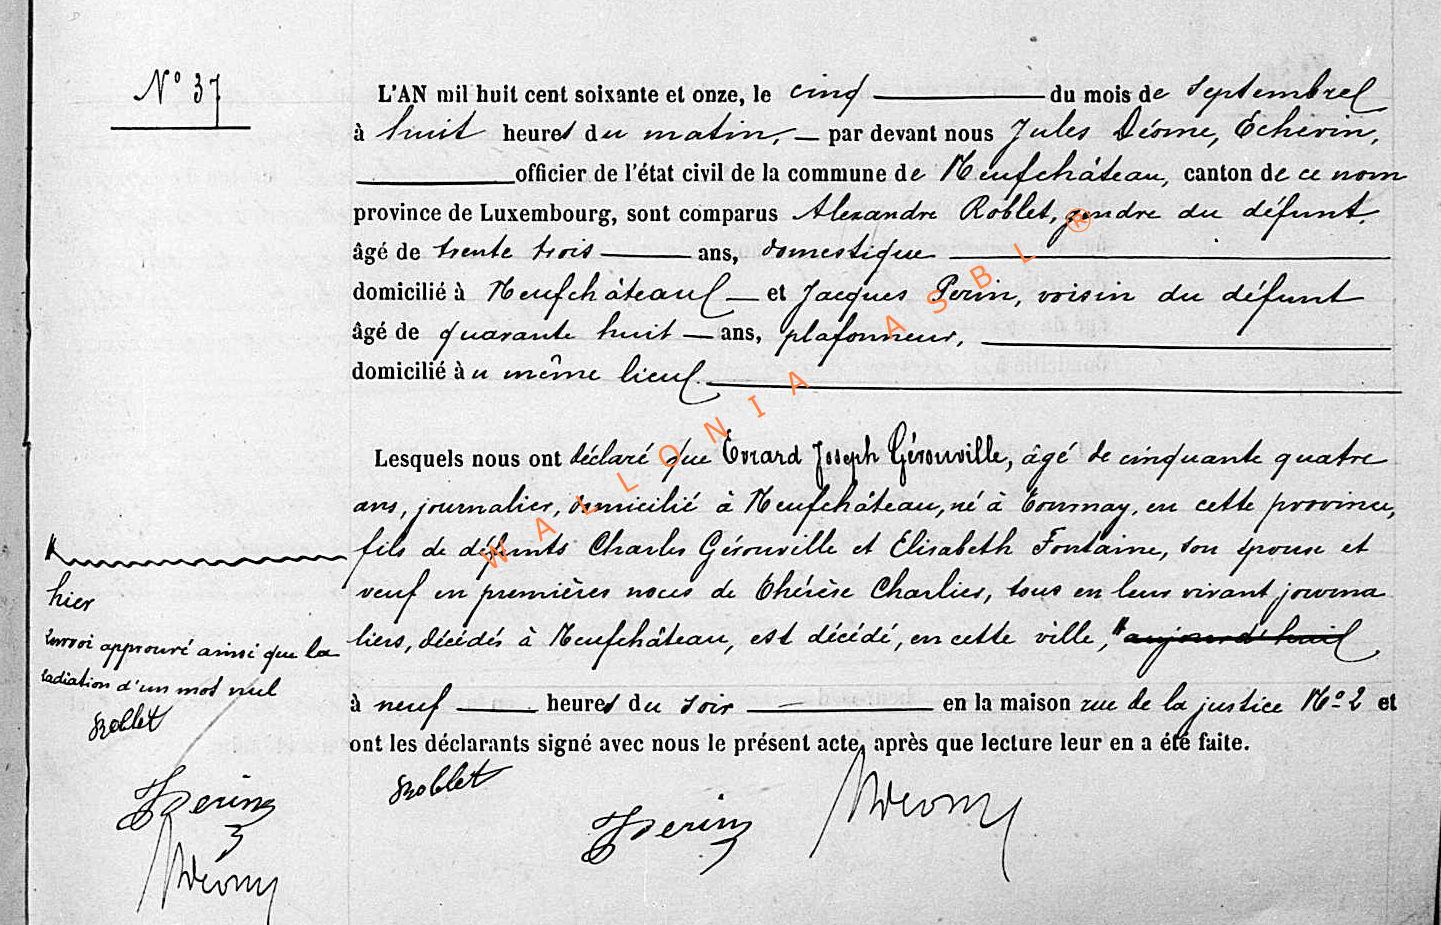 N° 37
L'AN mil huit cent soixante et onze, le cinq du mois de septembre
à huit heures du matin, par devant nous Jules Déome, Echevin,
officier de l'état civil de la commune de Neufchâteau, canton de ce nom
province de Luxembourg, sont comparus Alexandre Roblet, gendre du défunt,
âgé de trente trois ans, domestique
domicilié à Neufchâteau et Jacques Perin, voisin du défunt
âgé de quarante huit ans, plafonneur,
domicilié au même lieu.
Lesquels nous ont déclaré que Evrard Joseph Gérouville, âgé de cinquante quatre
ans, journalier, domicilié à Neufchâteau, né à Tournay, en cette province,
fils de défunts Charles Gérouville et Elisabeth Fontaine, son épouse et
veuf en premières noces de Thérèse Charlier, tous en leur vivant journa
liers, décédés à Neufchâteau, est décédé, en cette ville, aujourd'hui
hier
renvoi approuvé ainsi que la
radiation d'un mot nul
Roblet
Perin
Déome
à neuf heures du soir en la maison rue de la justice N° 2 et
ont les déclarants signé avec nous le présent acte, après que lecture leur en a été faite.
Roblet
Perin
Déome
WALLONIA ASBL ®